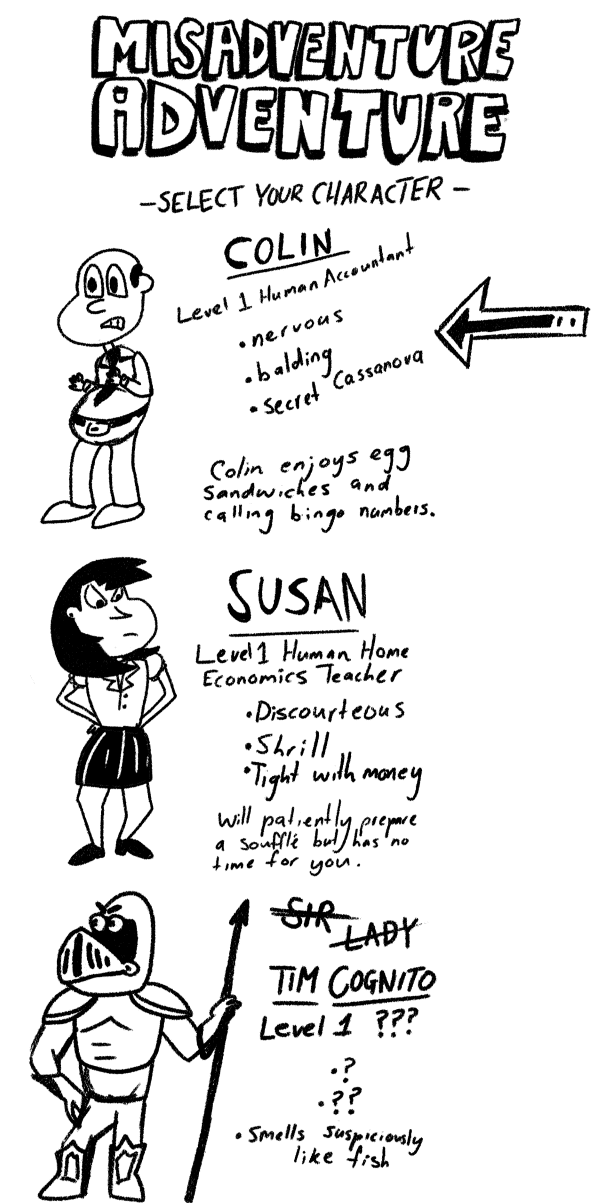 MISADVENTURE
ADVENTURE
-SELECT YOUR CHARACTER-
COLIN
Level 1 Human Accountant
• nervous
• balding
• secret Cassanova
Colin enjoys egg
sandwiches and
calling bingo numbers.
SUSAN
Level 1 Human Home
Economics Teacher
• Discourteous
• Shrill
• Tight with money
Will patiently prepare
a soufflé but has no
time for you.
SIR
LADY
TIM COGNITO
Level 1 ???
• ?
• ??
• Smells suspiciously
like fish